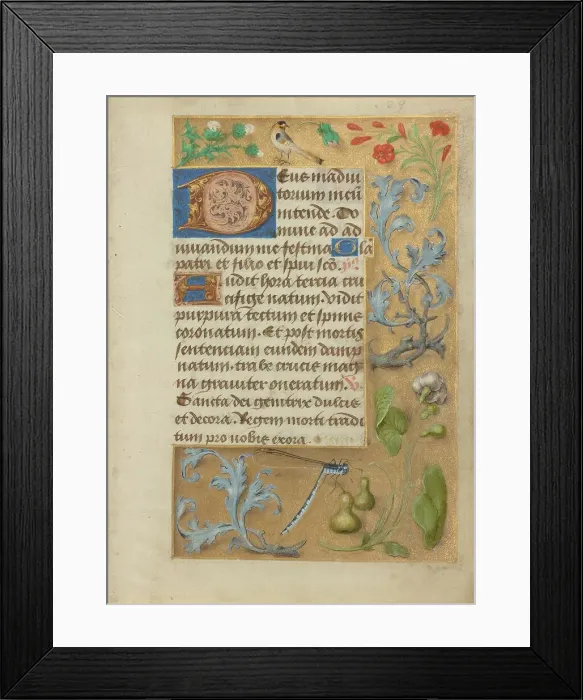 Eus in adiu
torium meū
intende. Do
mine ad ad
iuuandum me festina. Gl̄a
patri et filio et spiui sc̄o. 
Audit hora tercia cru
cifige natum. vidit
purpura tectum et spinis
coronatum. Et post mortis
sentenciam eundem damp
natum. trabe crucis mag
na grauiter oneratum. V.
Sancta dei genitrix dulcis
et decora. Regem morti tradi
tum pro nobis exora.